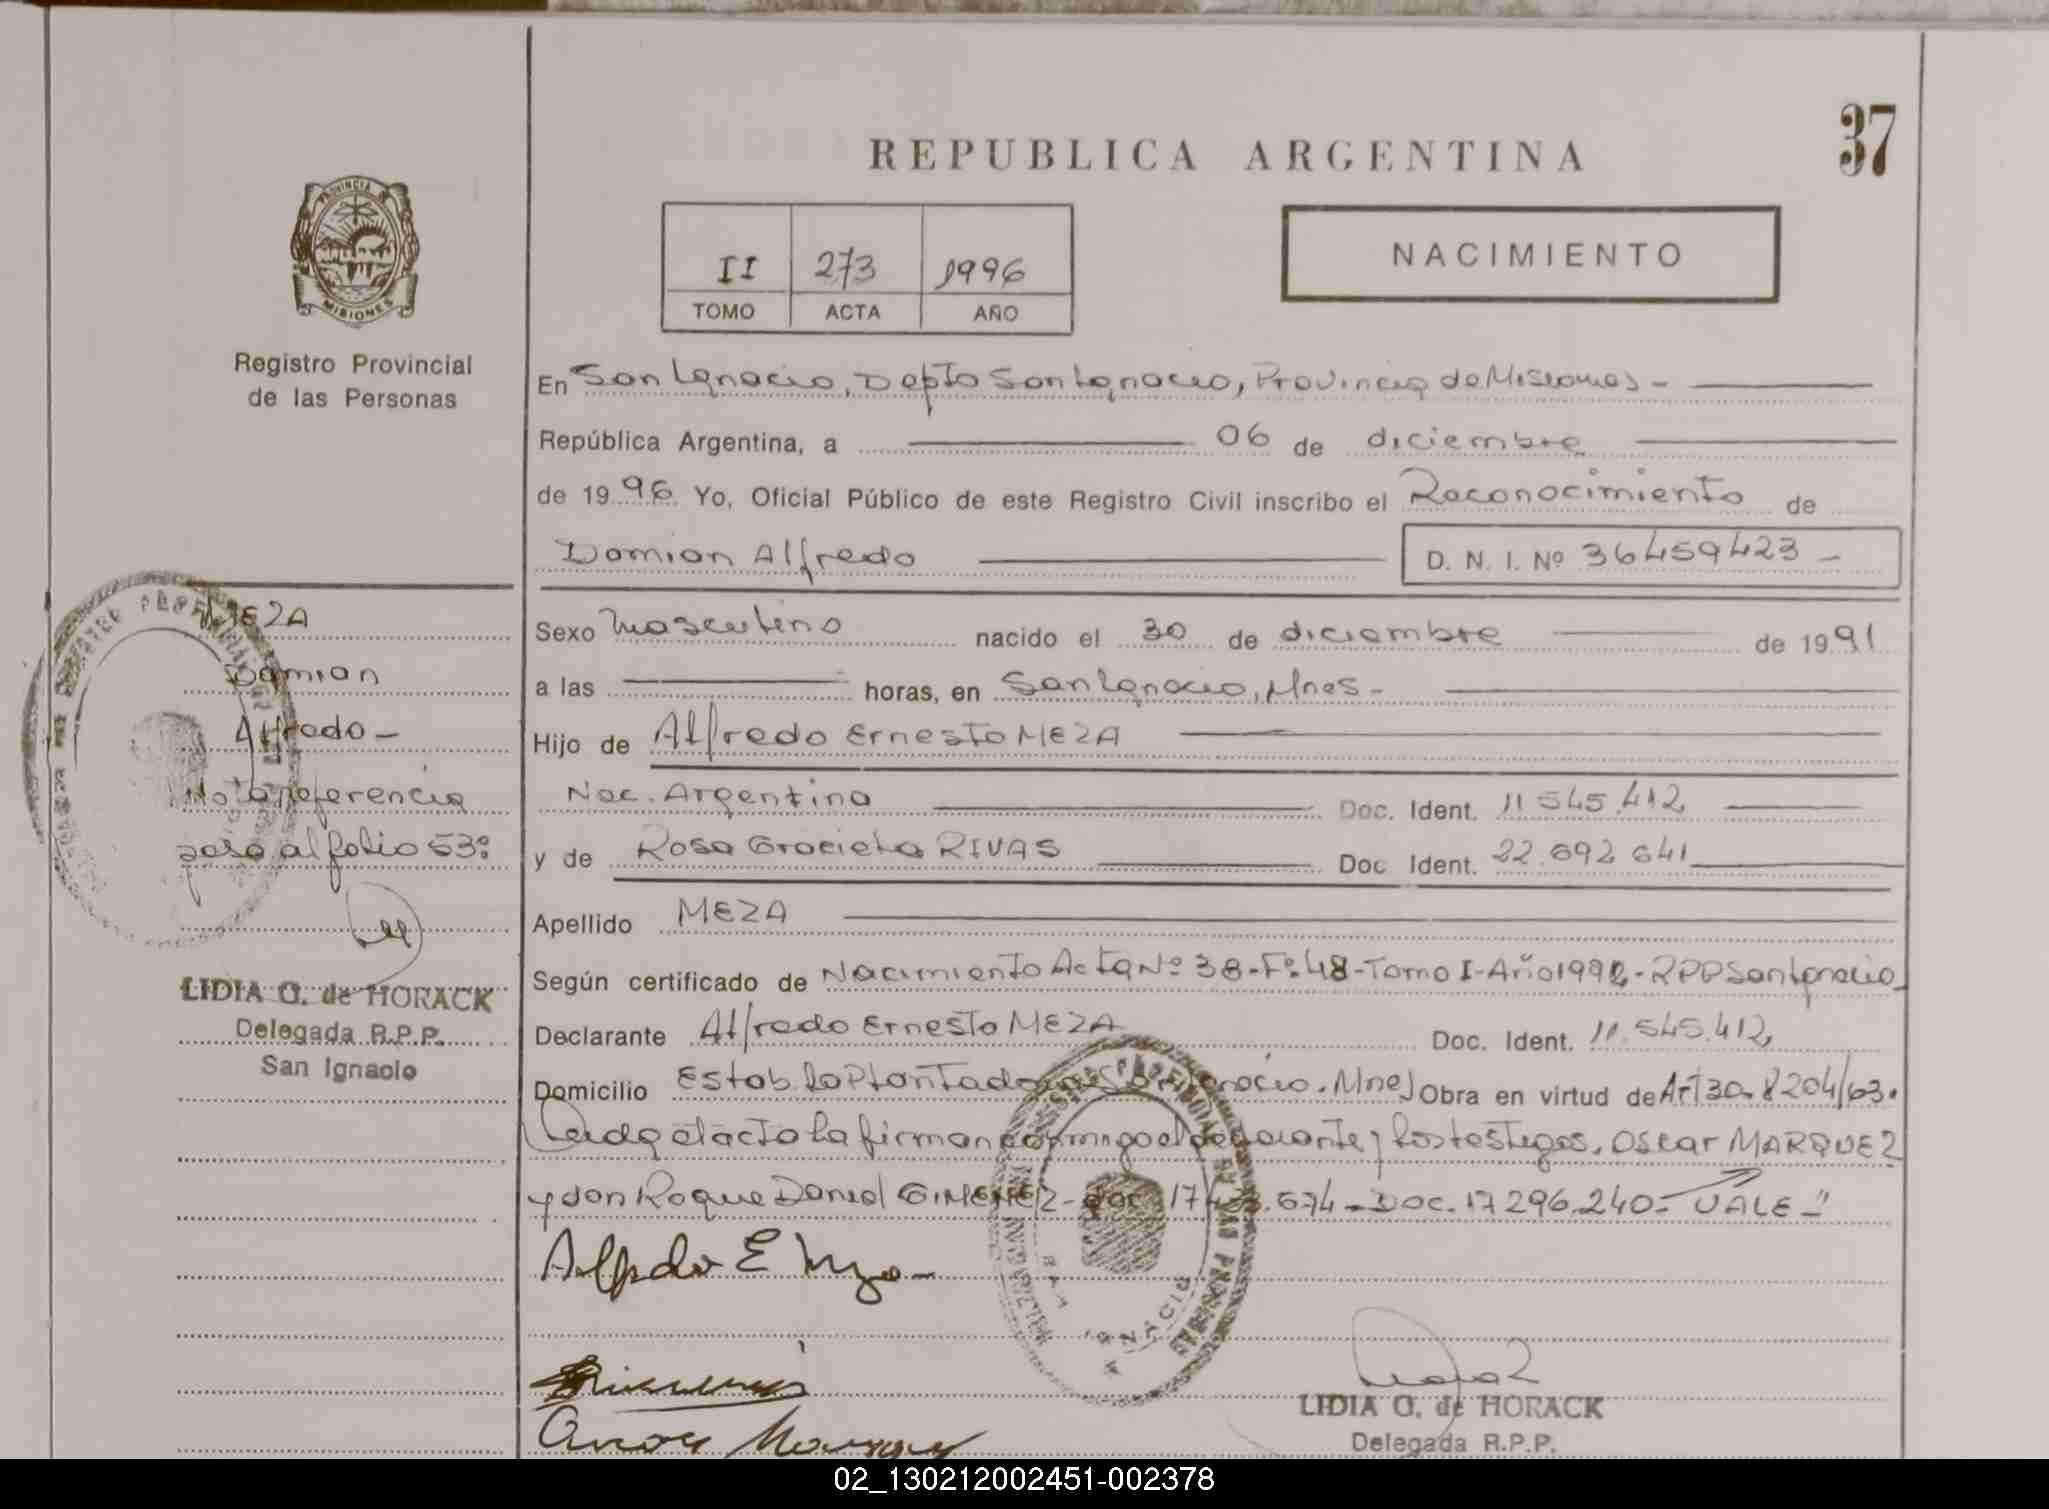 37
REPUBLICA ARGENTINA
PROVINCIA DE
MISIONES
II 273 1996
TOMO ACTA AÑO
NACIMIENTO
Registro Provincial
de las Personas
En San Ignacio, Depto San Ignacio, Provincia de Misiones -
República Argentina, a 06 de diciembre
de 1996 Yo, Oficial Público de este Registro Civil inscribo el Reconocimiento de
Damian Alfredo D. N. I. Nº 36459423 -
MEZA
Damian
Alfredo -
Nota referencia
pasa al folio 53º
LIDIA O. de HORACK
Delegada R.P.P.
San Ignacio
Sexo Masculino nacido el 30 de diciembre de 1991
a las horas, en San Ignacio, Mnes -
Hijo de Alfredo Ernesto MEZA
Nac. Argentina Doc. Ident. 11 545.412
y de Rosa Graciela RIVAS Doc Ident. 22.692 641
Apellido MEZA
Según certificado de Nacimiento Acta Nº 38 - Fº 48 - Tomo I - Año 1992 - RPP San Ignacio
Declarante Alfredo Ernesto MEZA Doc. Ident. 11.545.412
Domicilio Estab. La Plantadora San Ignacio. Mnes Obra en virtud de Art 30. 8204/63.
Leida el acta la firman conmigo el declarante y los testigos. Oscar MARQUEZ
y don Roque Daniel GIMENEZ - doc 17 .674 - Doc. 17 296.240 - VALE -"
Alfredo E Meza -
LIDIA O. de HORACK
Delegada R.P.P.
02_130212002451-002378